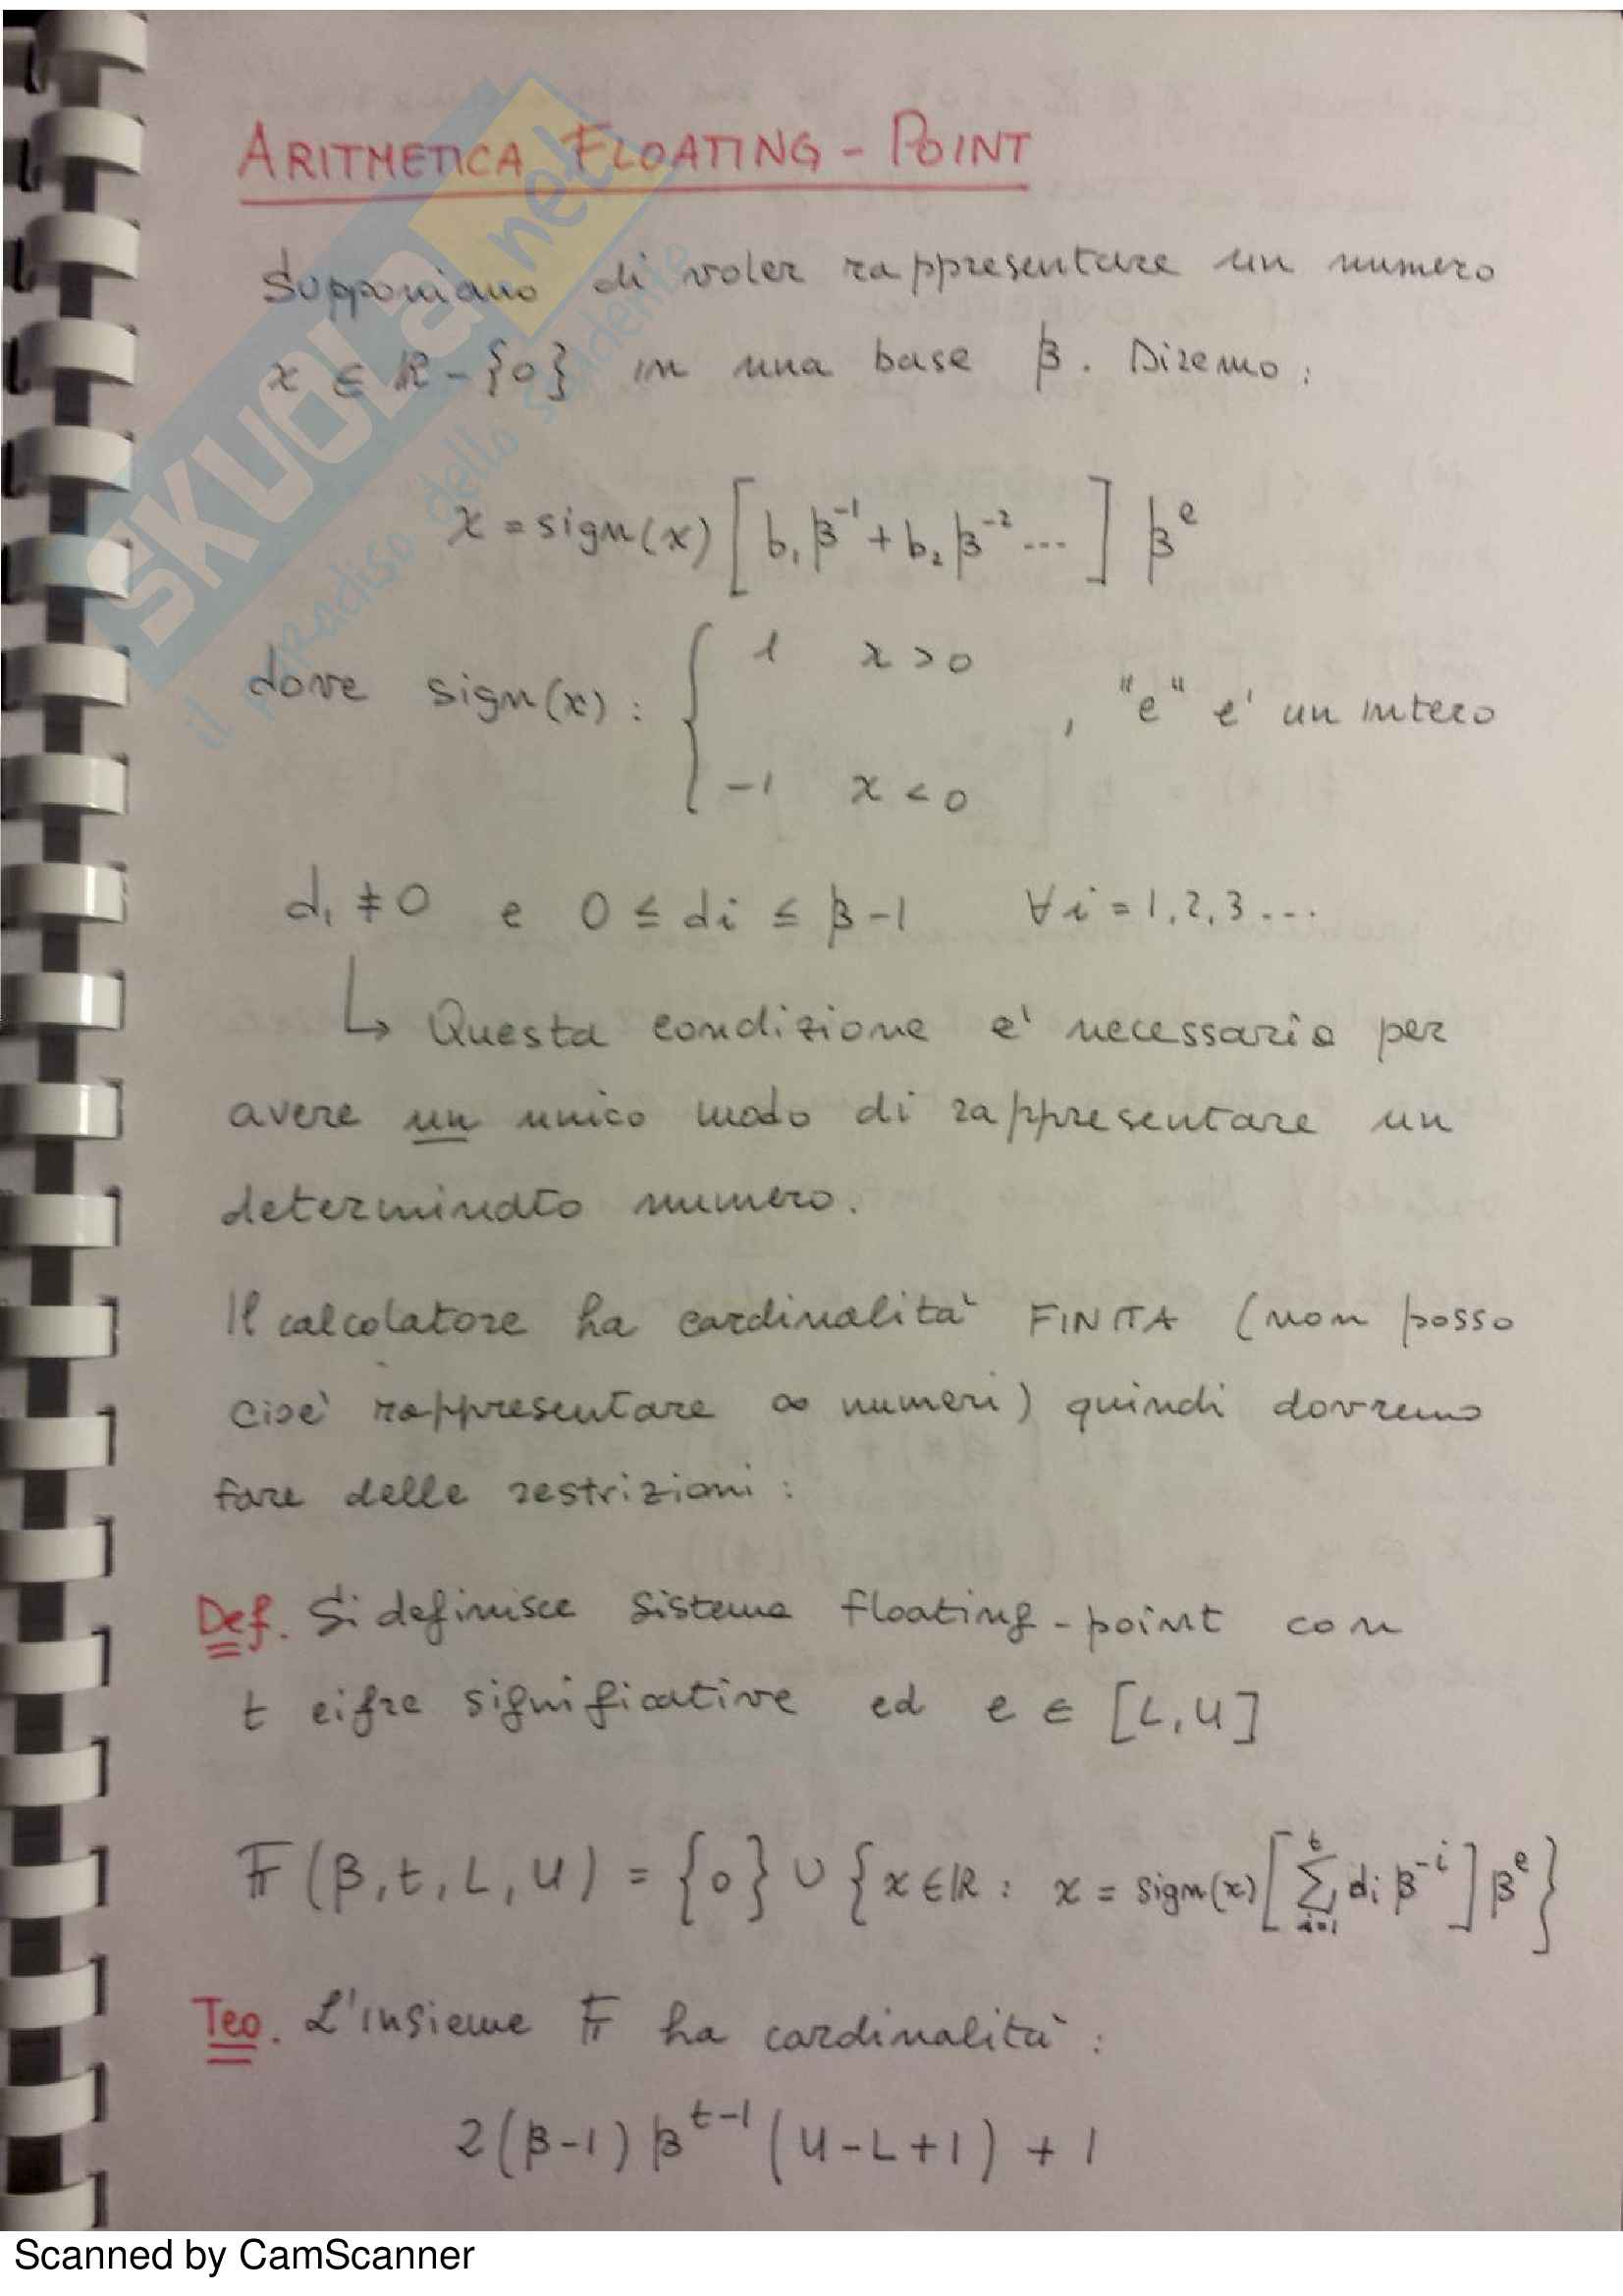 ARITMETICA FLOATING - POINT
Supponiamo di voler rappresentare un numero
x ∈ ℝ - {0} in una base β. Diremo:
x = sign(x) [b₁ β⁻¹ + b₂ β⁻² ...] βᵉ
dove sign(x): { 1 x > 0
, "e" e' un intero
-1 x < 0
d₁ ≠ 0 e 0 ≤ di ≤ β-1 ∀i = 1,2,3...
↳ Questa condizione e' necessaria per
avere un unico modo di rappresentare un
determinato numero.
Il calcolatore ha cardinalità FINITA (non posso
cioè rappresentare ∞ numeri) quindi dovremo
fare delle restrizioni:
Def. Si definisce sistema floating-point con
t cifre significative ed e ∈ [L, U]
𝔽(β, t, L, U) = {0} ∪ {x ∈ ℝ : x = sign(x) [∑ᵢ₌₁ᵗ dᵢ β⁻ⁱ] βᵉ}
Teo. L'insieme 𝔽 ha cardinalità:
2(β-1) βᵗ⁻¹ (U-L+1) + 1
SKUOLA.net
il paradiso dello studente
Scanned by CamScanner